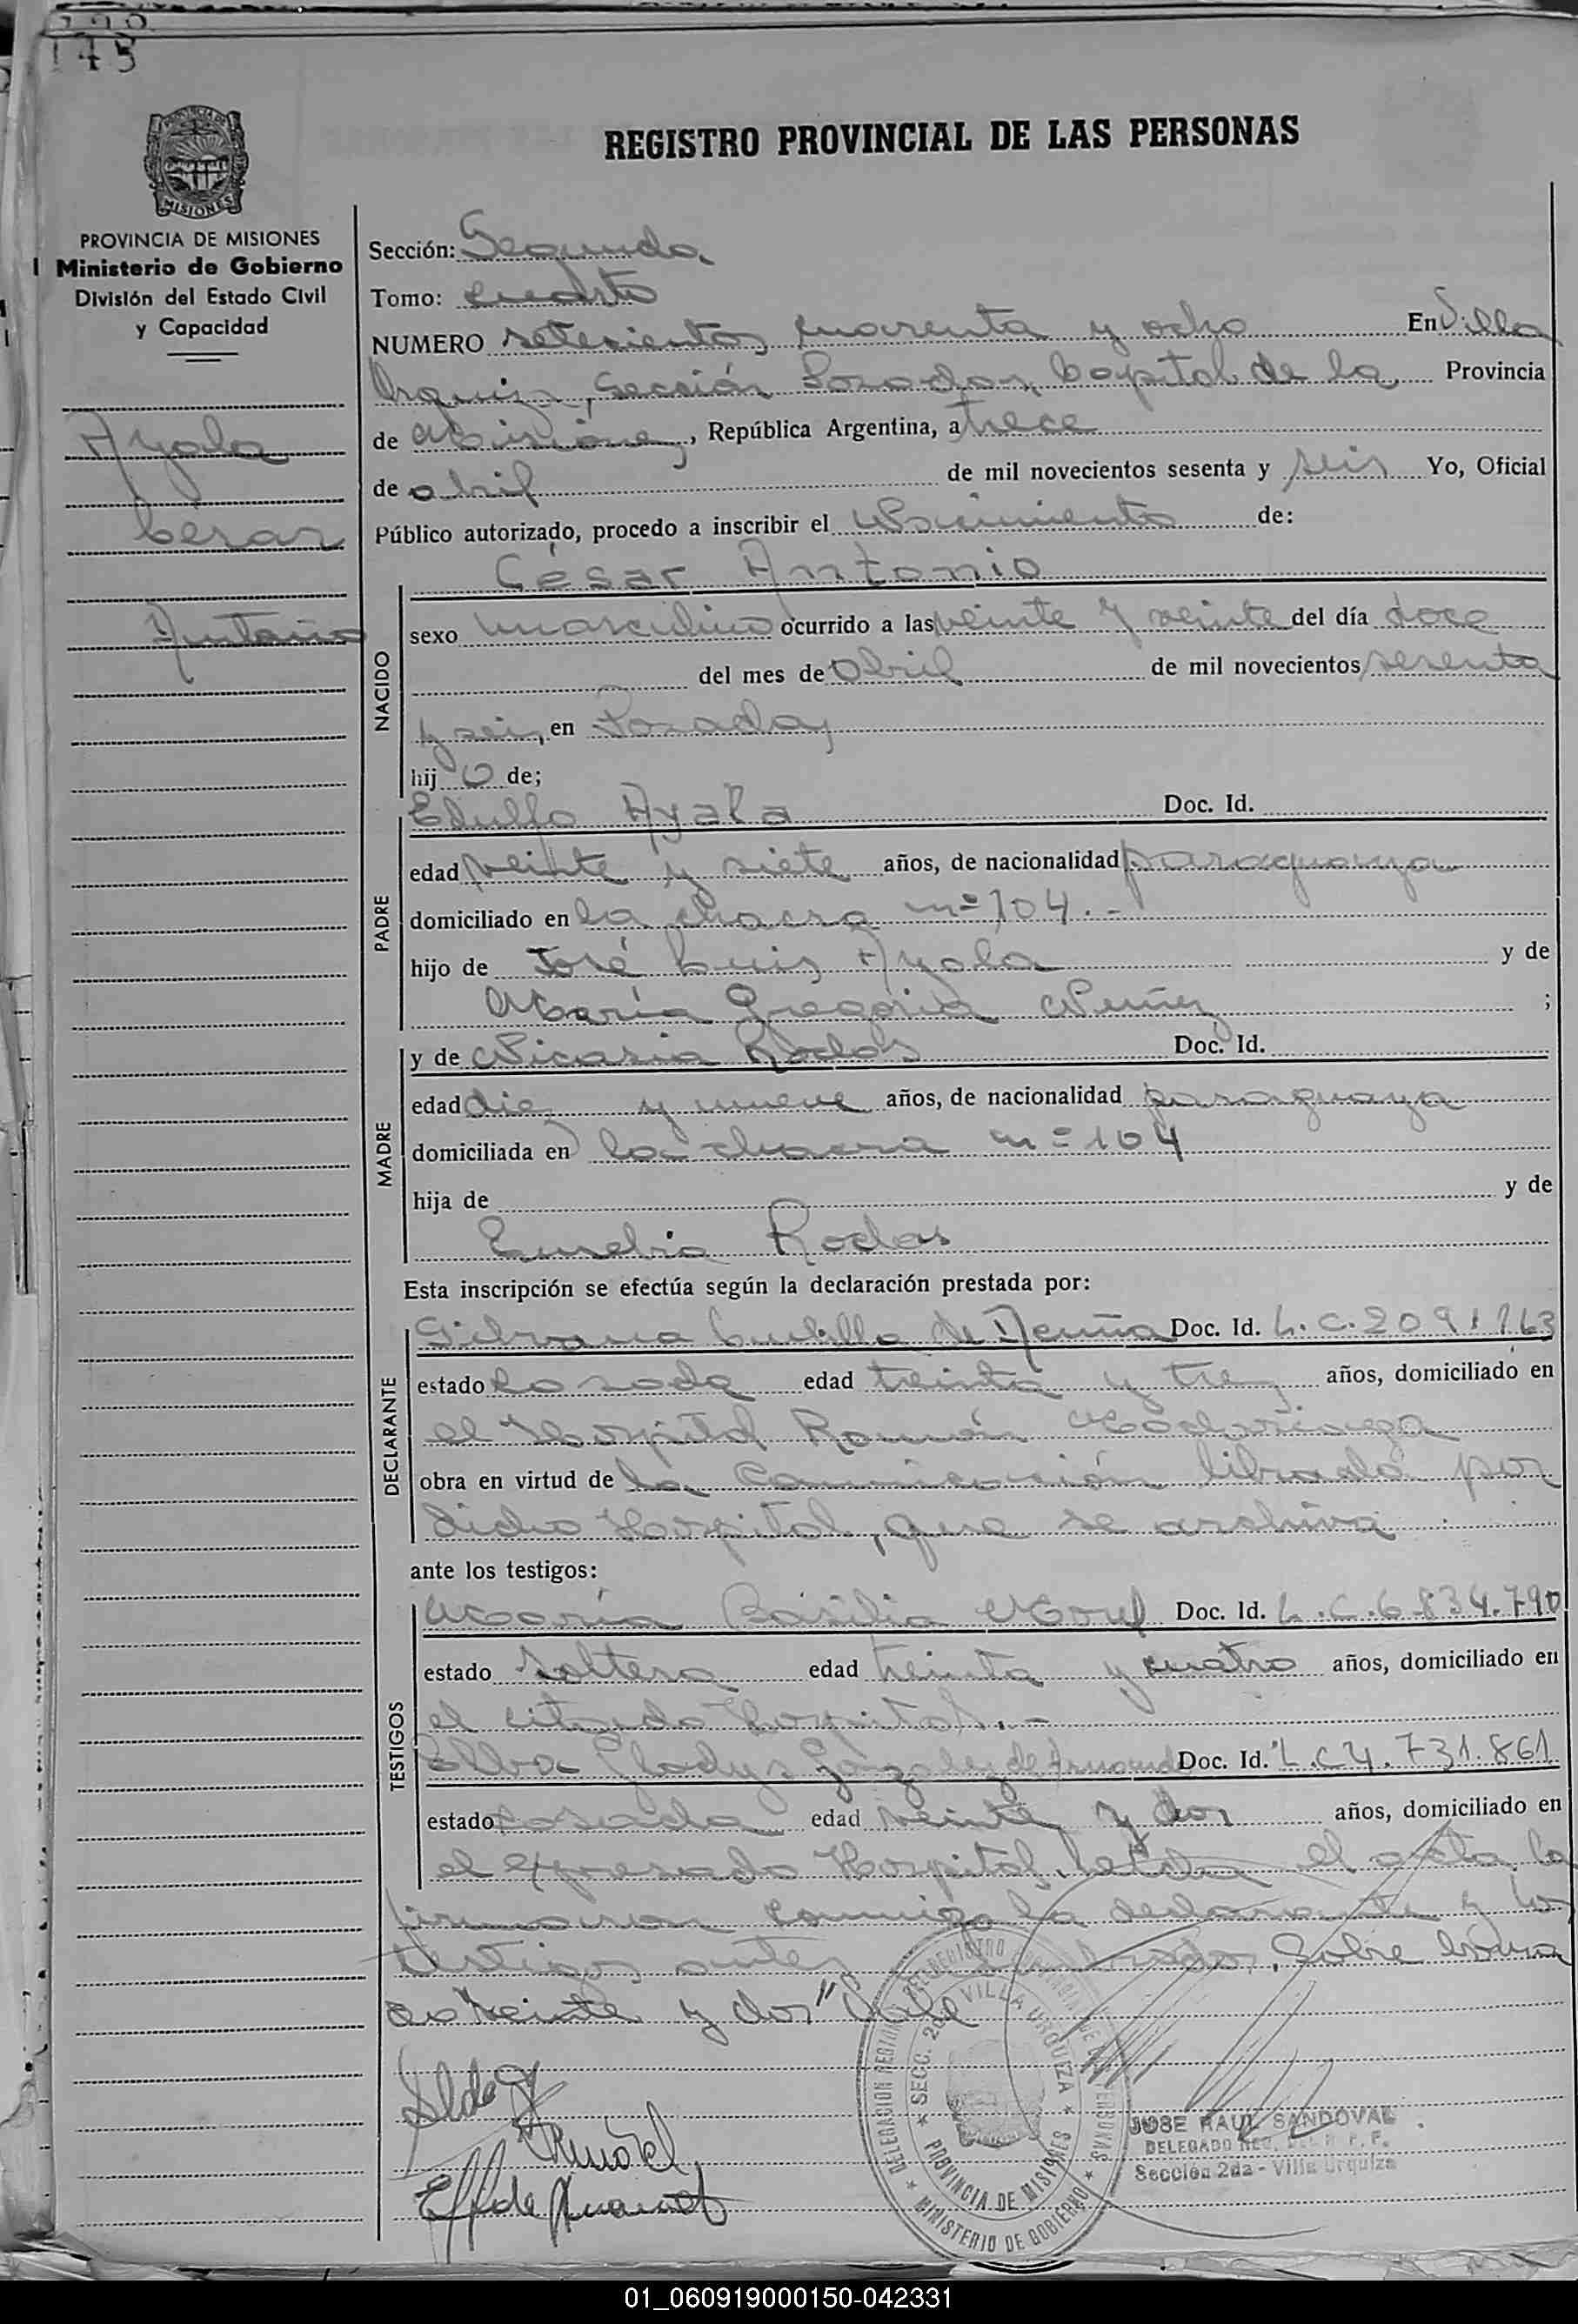 173
REGISTRO PROVINCIAL DE LAS PERSONAS
MISIONES
PROVINCIA DE MISIONES
Ministerio de Gobierno
División del Estado Civil
y Capacidad
Ayala
Cesar
Antonio
Sección: Segunda
Tomo: cuarto
NUMERO setecientos cuarenta y ocho En Villa
Urquiza, Sección Posadas, Capital de la Provincia
de Misiones, República Argentina, a trece
de abril de mil novecientos sesenta y seis Yo, Oficial
Público autorizado, procedo a inscribir el Nacimiento de:
César Antonio
NACIDO
sexo masculino ocurrido a las veinte y veinte del día doce
del mes de Abril de mil novecientos sesenta
y seis, en Posadas
hijo de;
PADRE
Edulfo Ayala Doc. Id.
edad veinte y siete años, de nacionalidad paraguaya
domiciliado en la chacra nº 104.-
hijo de José Luis Ayala y de
María Gregoria Nuñez ;
MADRE
y de Nicasia Rodas Doc. Id.
edad diez y nueve años, de nacionalidad paraguaya
domiciliada en la chacra nº 104
hija de y de
Eusebia Rodas
Esta inscripción se efectúa según la declaración prestada por:
DECLARANTE
de Doc. Id. L.C. 2091163
estado casada edad treinta y tres años, domiciliado en
el Hospital Ramón Madariaga
obra en virtud de la comunicación librada por
dicho Hospital, que se archiva
ante los testigos:
TESTIGOS
María Basilia Doc. Id. L.C. 6.834.790
estado soltera edad treinta y cuatro años, domiciliado en
el citado Hospital.-
Elba Gladys González de Doc. Id. L.C 4.731.861
estado casada edad veinte y dos años, domiciliado en
el expresado Hospital. Leída el acta, la
firmaron conmigo la declarante y los
testigos antes nombrados. Sobre borrado
y dos" Vale
DELEGACION REGISTRO PERSONAS
SECC. 2da VILLA URQUIZA
PROVINCIA DE MISIONES
MINISTERIO DE GOBIERNO
JOSE RAUL SANDOVAL
DELEGADO
Sección 2da - Villa Urquiza
01_060919000150-042331